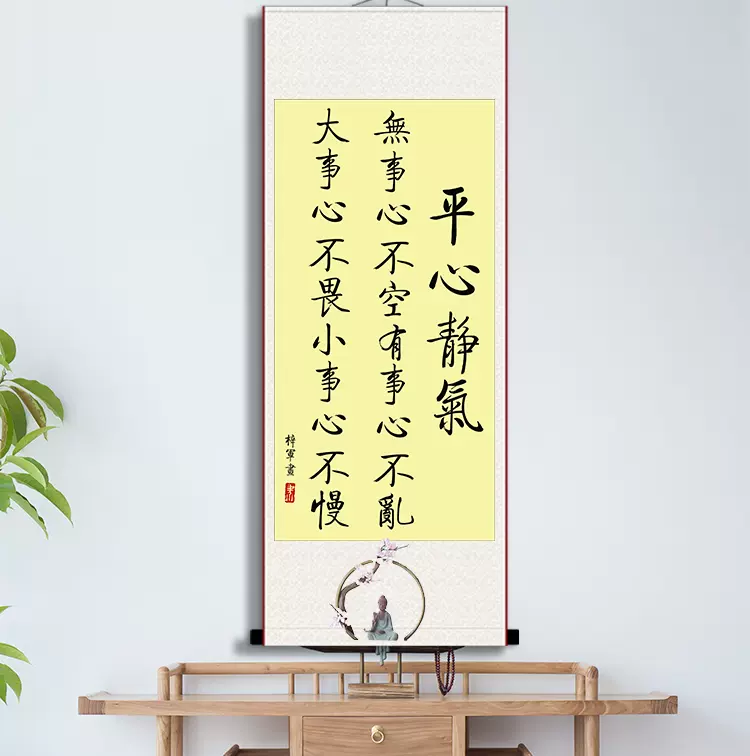 平心靜氣
無事心不空有事心不亂
大事心不畏小事心不慢
梓軍畫